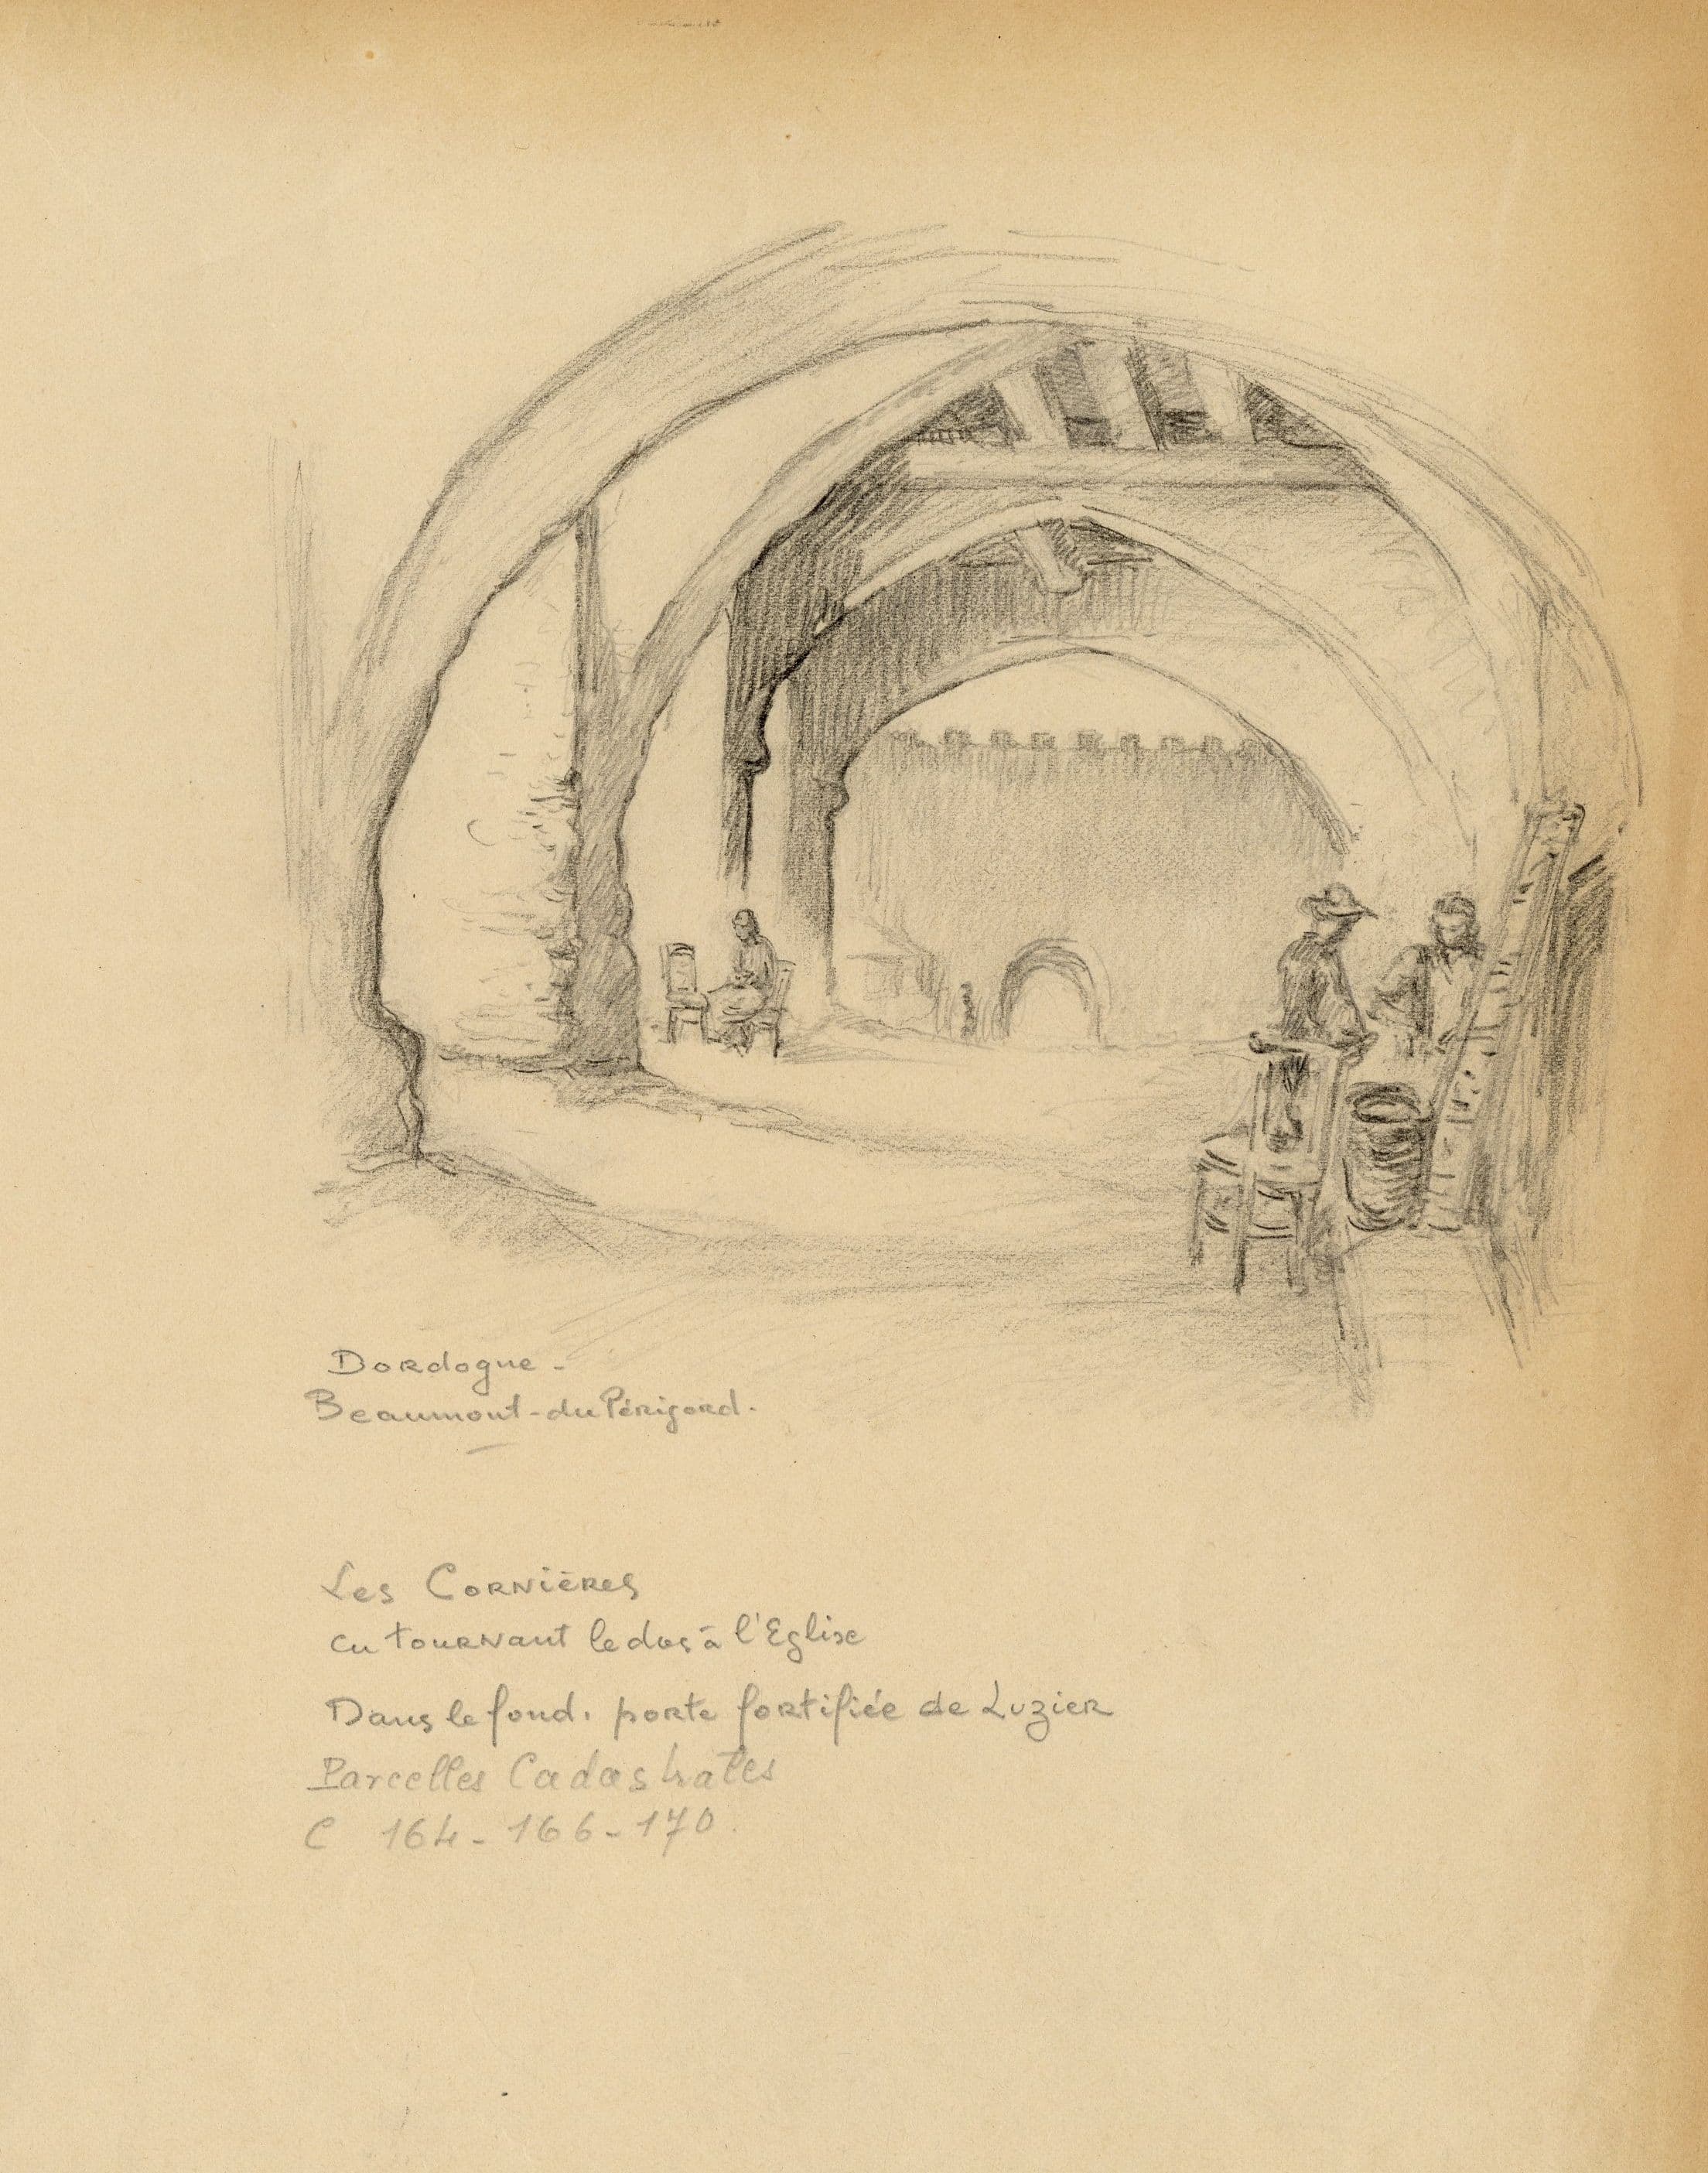 Dordogne -
Beaumont-du Périgord.
Les Cornières
en tournant le dos à l'Eglise
Dans le fond. porte fortifiée de Luzier
Parcelles Cadastrales
C 164 - 166 - 170.